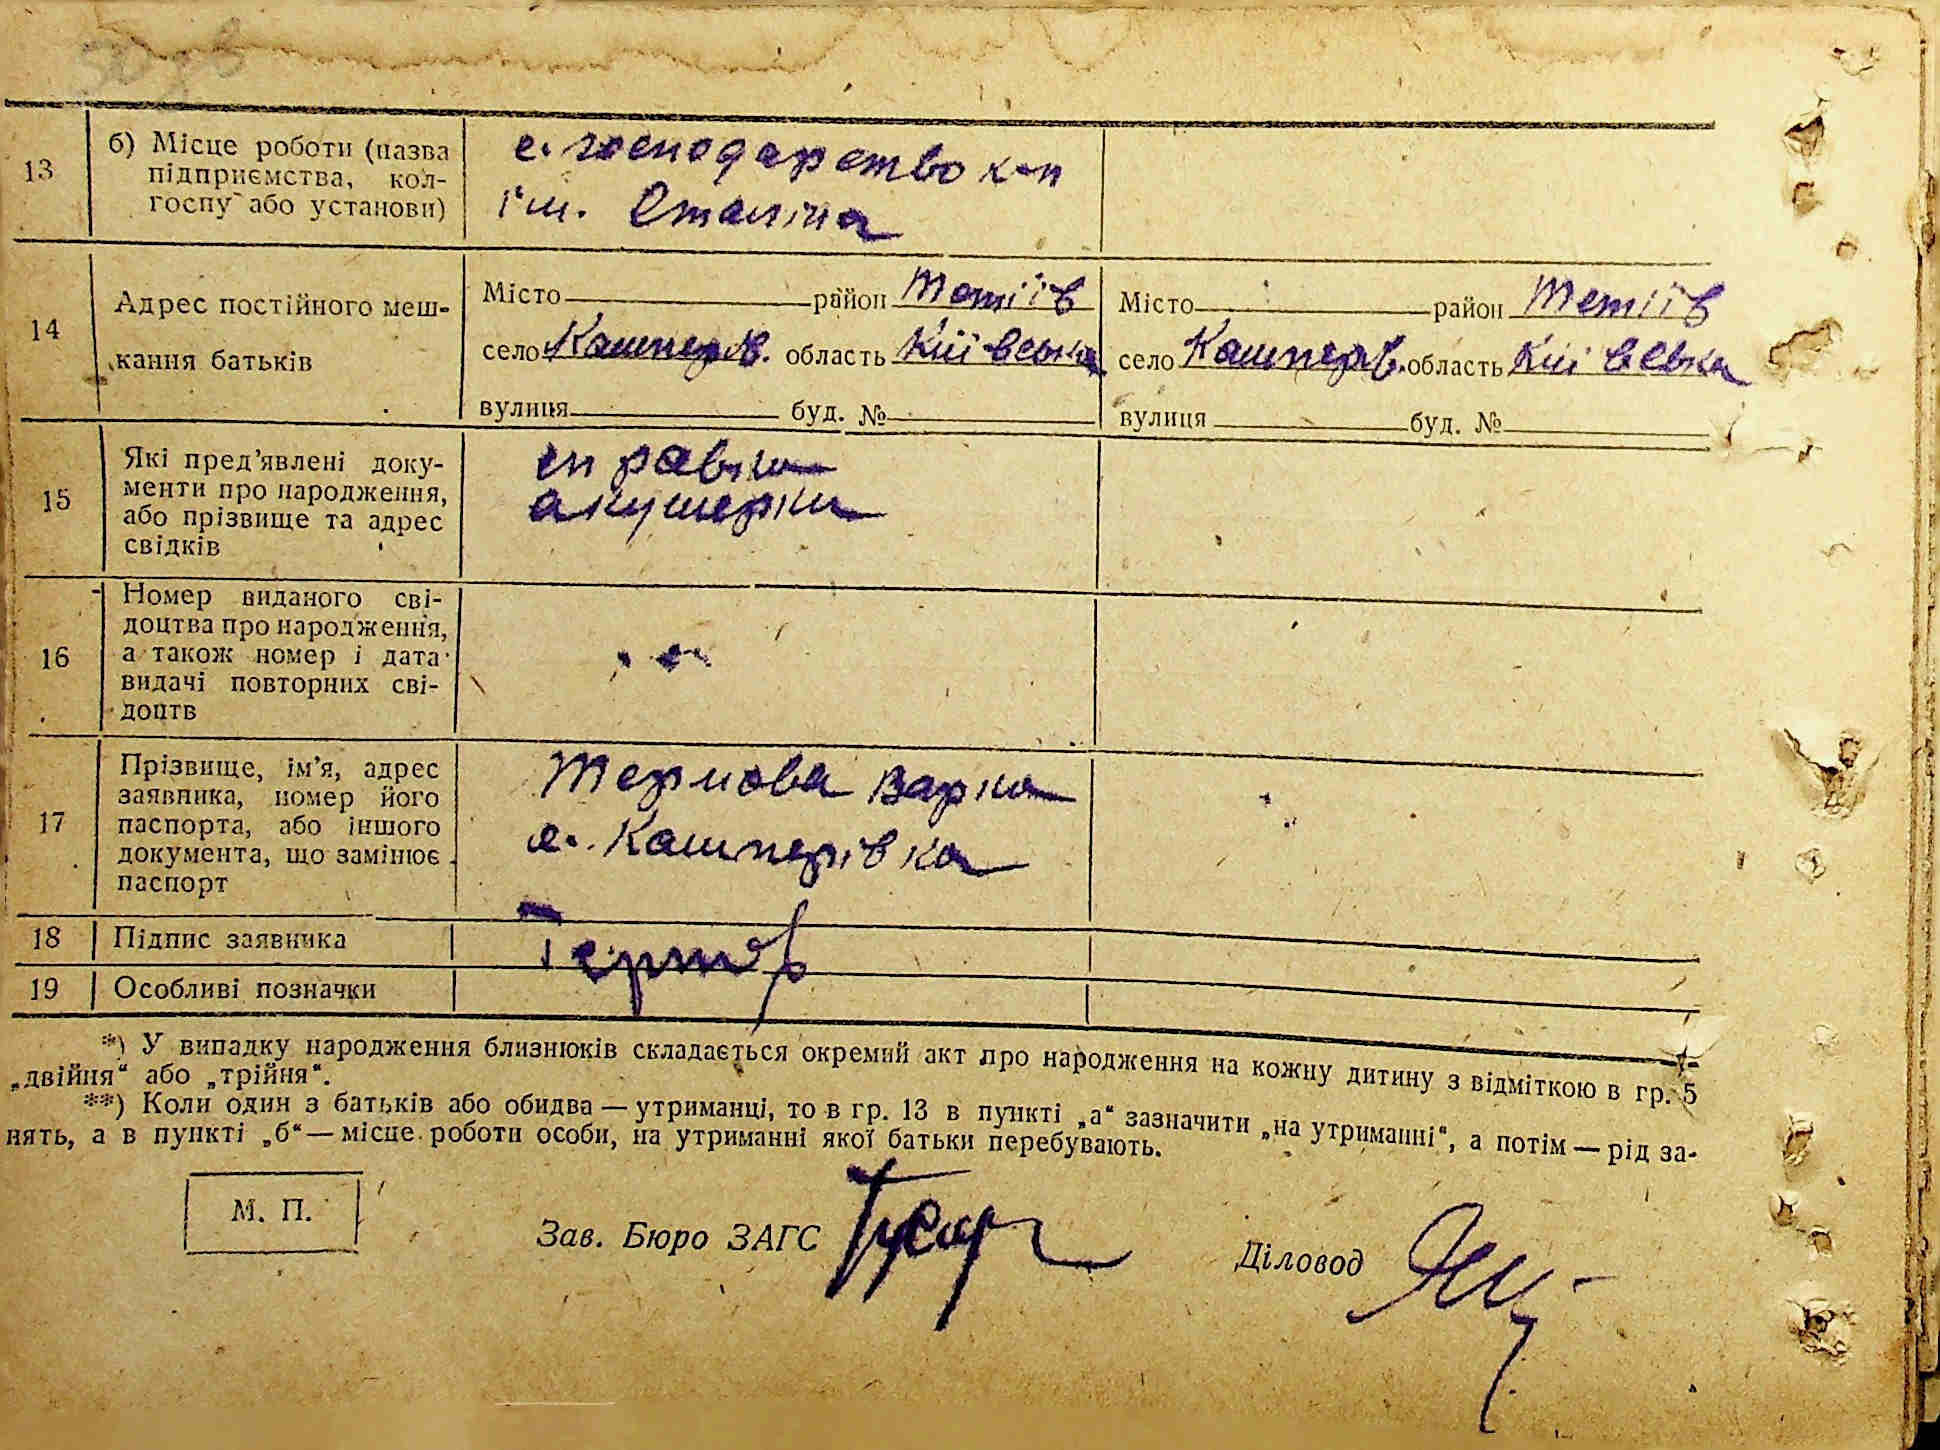 13
б) Місце роботи (назва
підприємства, кол-
госпу або установи)
с. господарство к-п
ім. Сталіна
14
Адрес постійного меш-
кання батьків
Місто район Тетіїв
село Кашперів. область Київська
вулиця буд. №
Місто район Тетіїв
село Кашперів. область Київська
вулиця буд. №
15
Які пред'явлені доку-
менти про народження,
або прізвище та адрес
свідків
справка
акушерки
16
Номер виданого сві-
доцтва про народження,
а також номер і дата
видачі повторних сві-
доцтв
17
Прізвище, ім'я, адрес
заявника, номер його
паспорта, або іншого
документа, що замінює
паспорт
Тернова Варка
с. Кашперівка
18
Підпис заявника
19
Особливі позначки
*) У випадку народження близнюків складається окремий акт про народження на кожну дитину з відміткою в гр. 5
„двійня“ або „трійня“.
**) Коли один з батьків або обидва — утриманці, то в гр. 13 в пункті „а“ зазначити „на утриманні“, а потім — рід за-
нять, а в пункті „б“ — місце роботи особи, на утриманні якої батьки перебувають.
М. П.
Зав. Бюро ЗАГС
Діловод